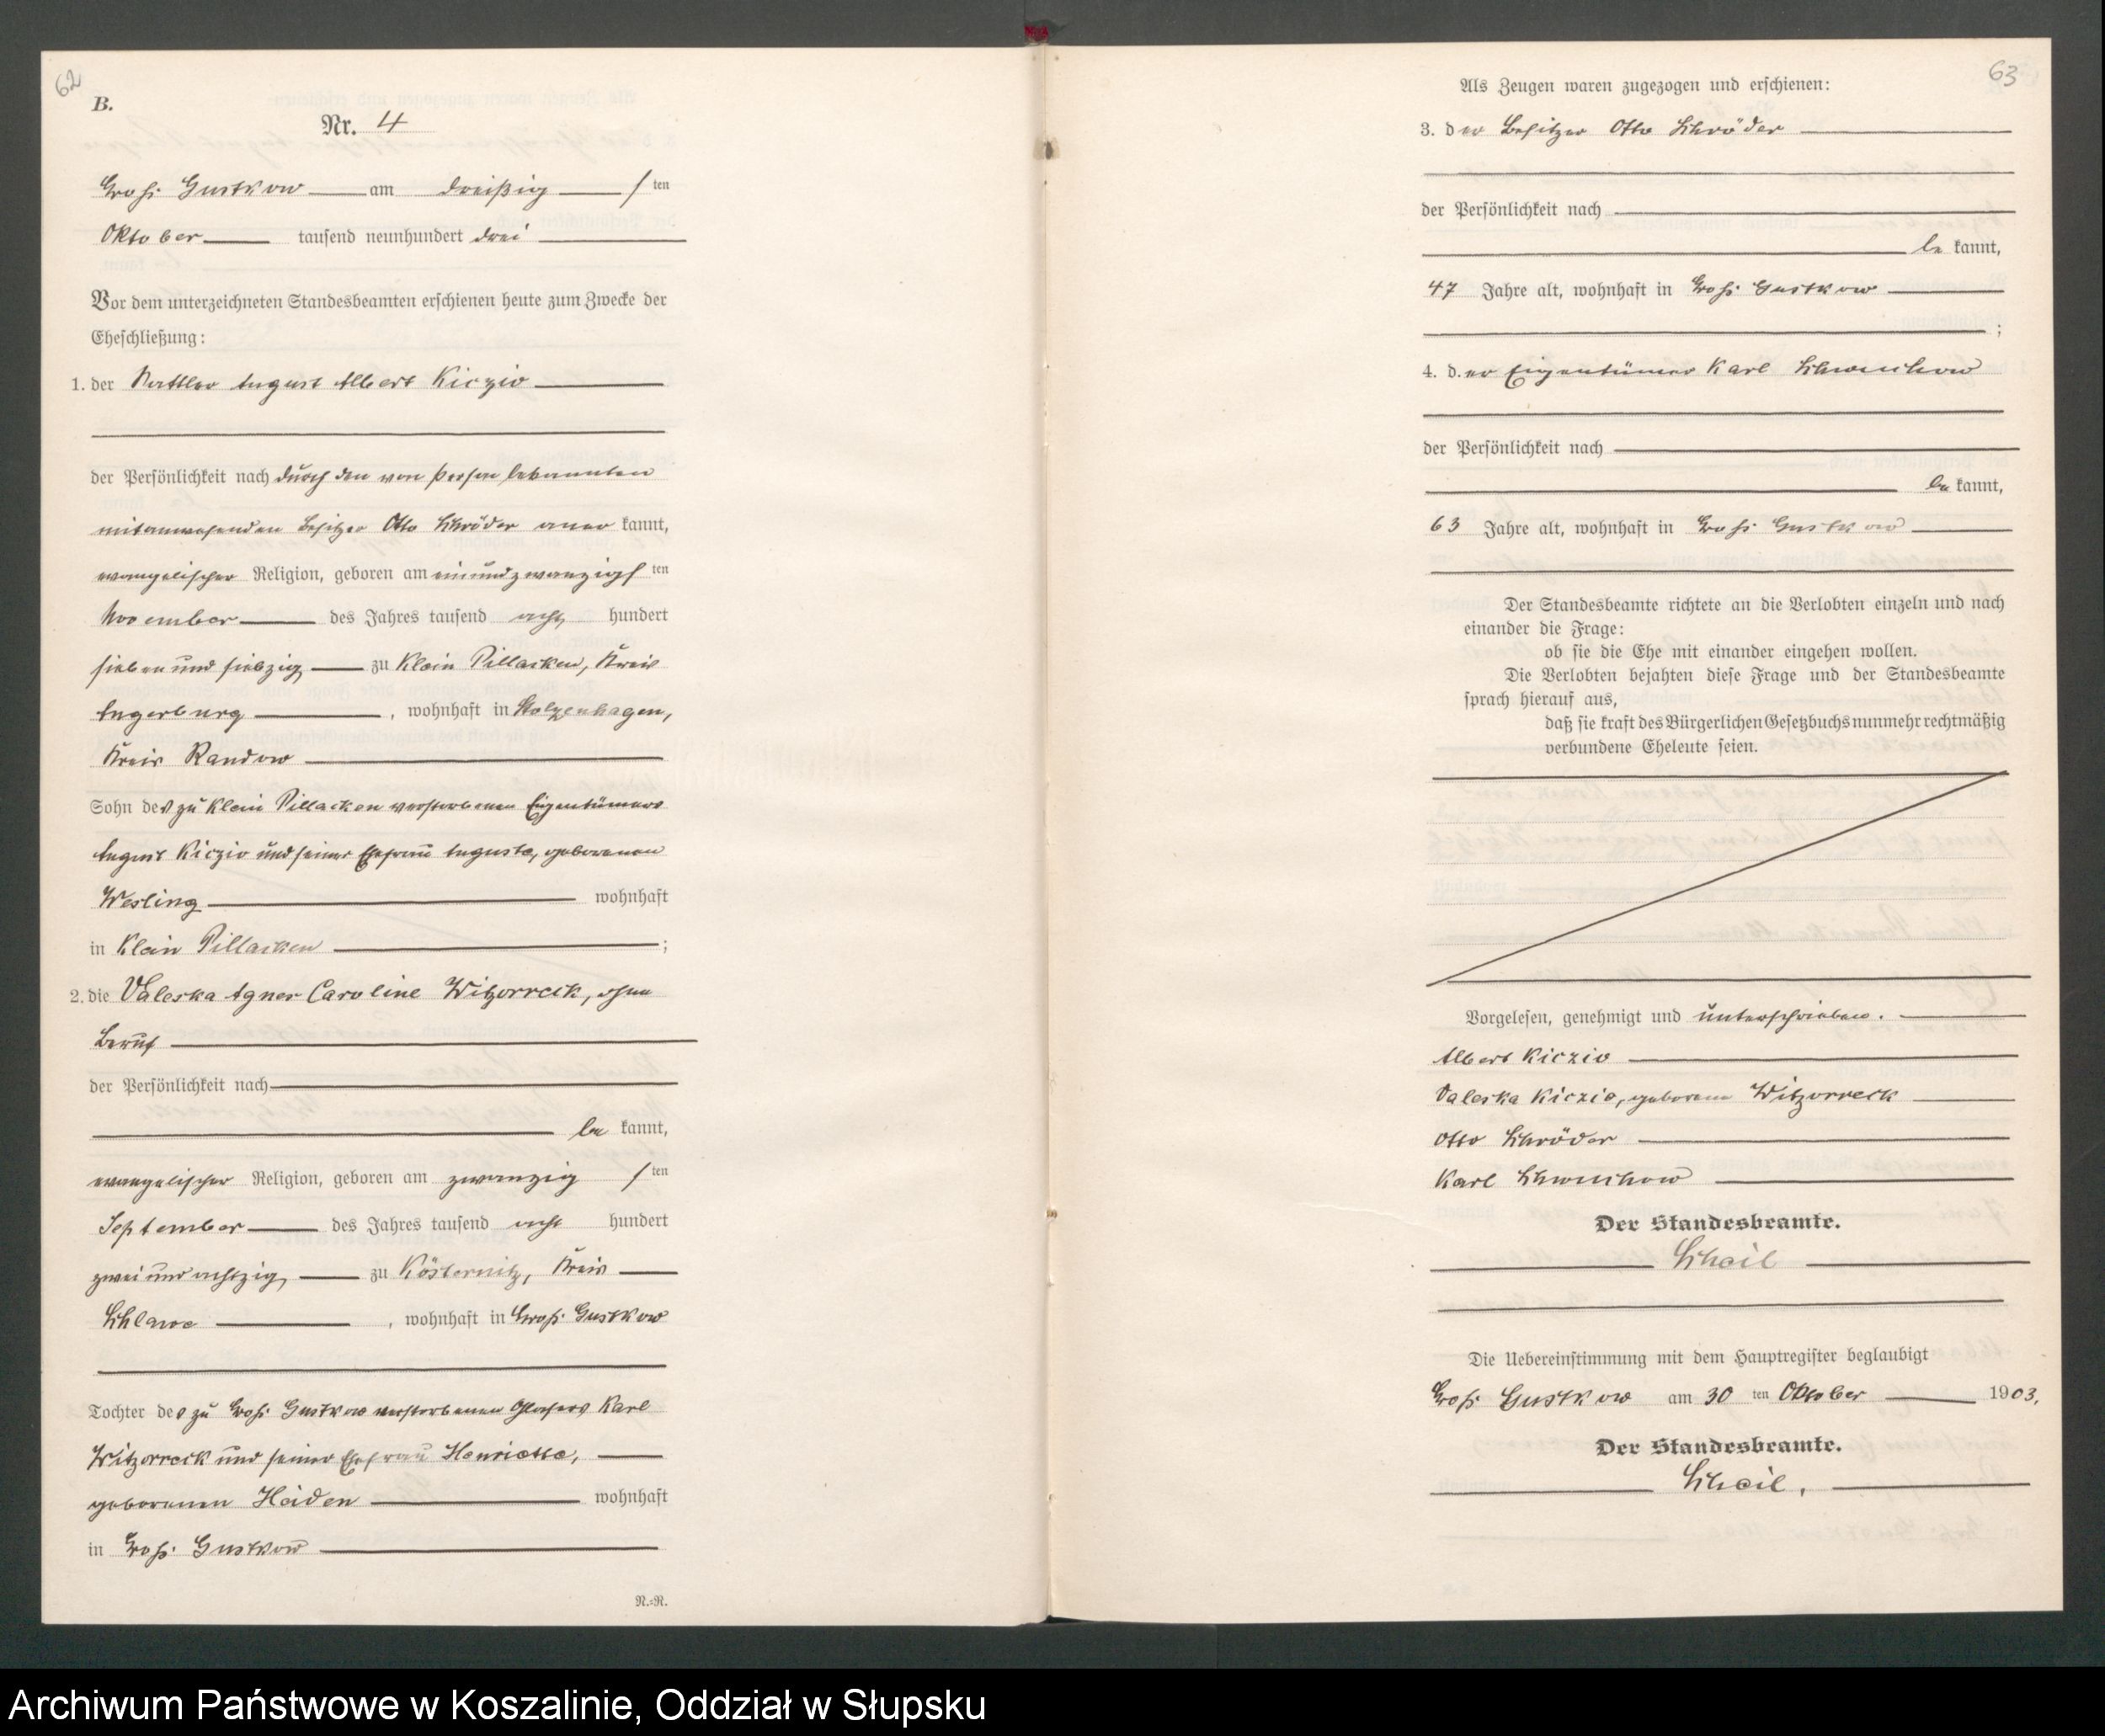 62
B.
Nr. 4
Groß Gustkow am dreißig sten
Oktober tausend neunhundert drei
Vor dem unterzeichneten Standesbeamten erschienen heute zum Zwecke der
Eheschließung:
1. der Sattler August Albert Kiczio
der Persönlichkeit nach durch den von Person bekannten
mitanwesenden Besitzer Otto Schröder aner kannt,
evangelischer Religion, geboren am einundzwanzigs ten
November des Jahres tausend acht hundert
sieben und siebzig zu Klein Pillacken, Kreis
Angerburg , wohnhaft in Stolzenhagen,
Kreis Randow
Sohn des zu Klein Pillacken verstorbenen Eigentümers
August Kiczio und seiner Ehefrau Auguste, geborenen
Wesling wohnhaft
in Klein Pillacken ;
2. die Valeska Agnes Caroline Witzorreck, ohne
Beruf
der Persönlichkeit nach
be kannt,
evangelischer Religion, geboren am zwanzig sten
September des Jahres tausend acht hundert
zwei und achtzig zu Kösternitz, Kreis
Schlawe , wohnhaft in Groß Gustkow
Tochter des zu Groß Gustkow verstorbenen Glasers Karl
Witzorreck und seiner Ehefrau Henriette,
geborenen Heiden wohnhaft
in Groß Gustkow
N.-R.
63
Als Zeugen waren zugezogen und erschienen:
3. der Besitzer Otto Schröder
der Persönlichkeit nach
be kannt,
47 Jahre alt, wohnhaft in Groß Gustkow
;
4. d.er Eigentümer Karl
der Persönlichkeit nach
be kannt,
63 Jahre alt, wohnhaft in Groß Gustkow
Der Standesbeamte richtete an die Verlobten einzeln und nach
einander die Frage:
ob sie die Ehe mit einander eingehen wollen.
Die Verlobten bejahten diese Frage und der Standesbeamte
sprach hierauf aus,
daß sie kraft des Bürgerlichen Gesetzbuchs nunmehr rechtmäßig
verbundene Eheleute seien.
Vorgelesen, genehmigt und unterschrieben.
Albert Kiczio
Valeska Kiczio, geborene Witzorreck
Otto Schröder
Karl
Der Standesbeamte.
Scheil
Die Uebereinstimmung mit dem Hauptregister beglaubigt
Groß Gustkow am 30 ten Oktober 1903.
Der Standesbeamte.
Scheil.
Archiwum Państwowe w Koszalinie, Oddział w Słupsku